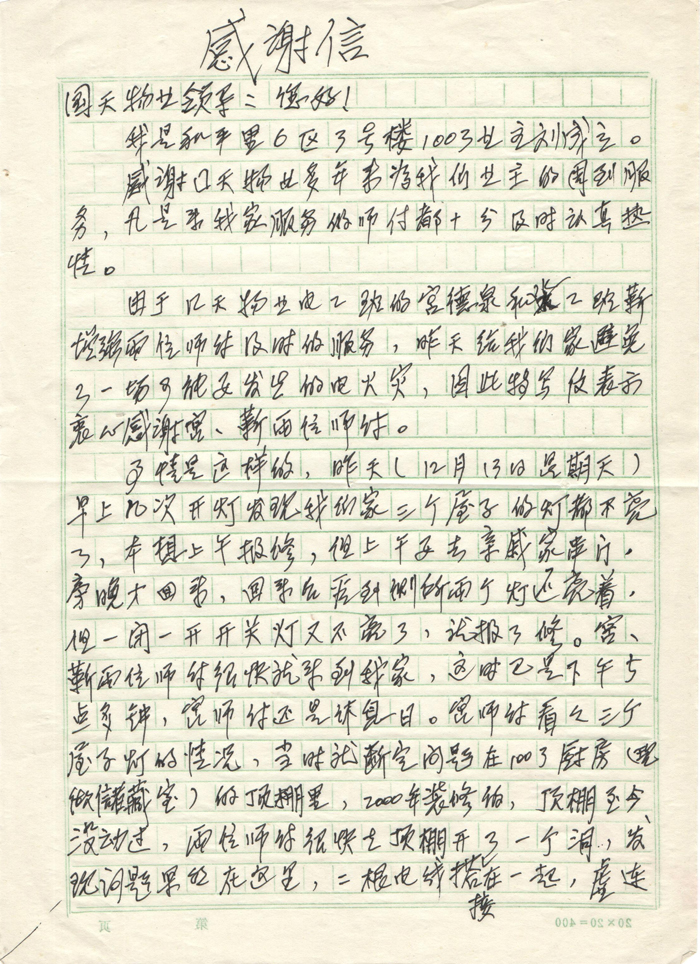 感谢信
国天物业领导：您好！
我是和平里6区3号楼1003业主刘成立。
感谢国天物业多年来为我们业主的周到服
务，凡是来我家服务的师付都十分及时认真热
情。
由于国天物业电工班的宫德泉和电工班靳
增强两位师付及时的服务，昨天给我们家避免
了一场可能要发生的电火灾，因此特写信表示
衷心感谢宫、靳两位师付。
事情是这样的，昨天（12月13日是期天）
早上几次开灯发现我们家三个屋子的灯都不亮
了，本想上午报修，但上午要去亲戚家串门，
旁晚才回来，回来后看到厕所两个灯还亮着，
但一闭一开开关灯又不亮了，就报了修。宫、
靳两位师付很快就来到我家，这时已是下午5
点多钟，宫师付还是休息日。宫师付看了三个
屋子灯的情况，当时就断定问题在1003厨房（现
做储藏室）的顶棚里，2000年装修的，顶棚至今
没动过，两位师付很快去顶棚开了一个洞，发
现问题果然在这里，二根电线搭在一起，虚连
接
20×20=400
第 页